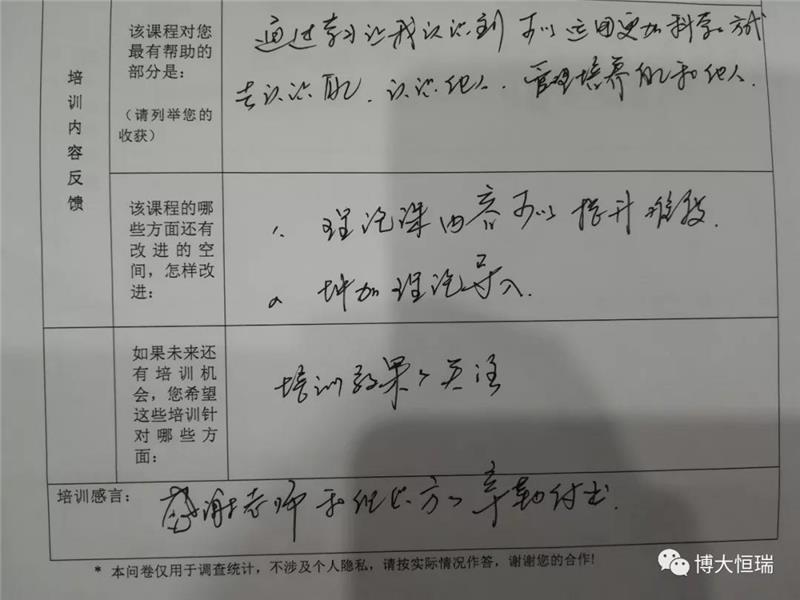 培训内容反馈
该课程对您最有帮助的部分是:
(请列举您的收获)
通过学习让我认识到可以运用更加科学方式
去认识自己、认识他人、管理培养自己和他人.
该课程的哪些方面还有改进的空间,怎样改进:
1、理论课内容可以提升难度.
2、增加理论导入.
如果未来还有培训机会,您希望这些培训针对哪些方面:
培训效果 关注
培训感言:
感谢老师和 方的辛勤付出.
* 本问卷仅用于调查统计,不涉及个人隐私,请按实际情况作答,谢谢您的合作!
博大恒瑞